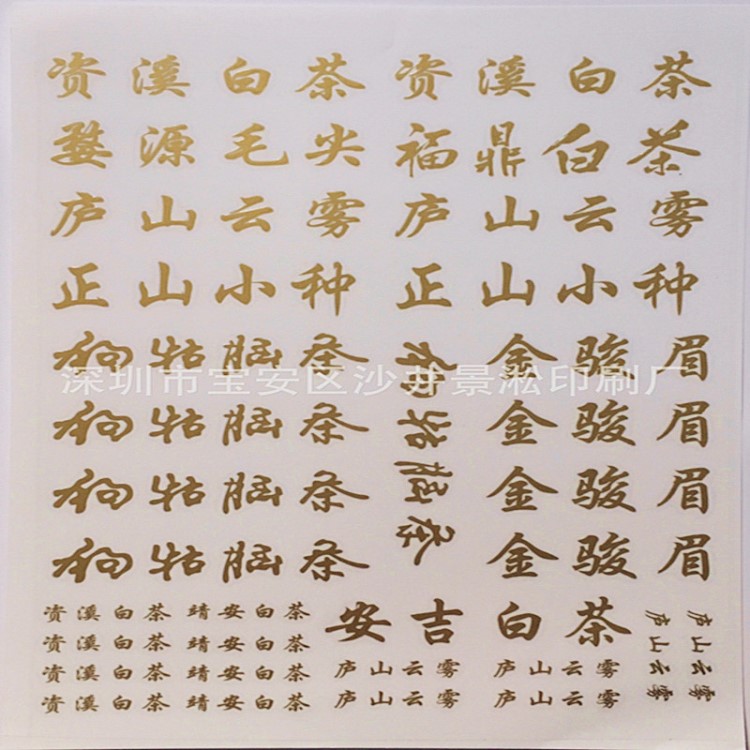 资溪白茶 资溪白茶
婺源毛尖 福鼎白茶
庐山云雾 庐山云雾
正山小种 正山小种
狗牯脑茶 金骏眉
深圳市宝安区沙井景淞印刷厂
狗牯脑茶 金骏眉
狗牯脑茶 金骏眉
狗牯脑茶 金骏眉
狗牯脑茶
安吉白茶
资溪白茶 靖安白茶
资溪白茶 靖安白茶
资溪白茶 靖安白茶
资溪白茶 靖安白茶
庐山云雾 庐山云雾
庐山云雾 庐山云雾
庐山云雾
庐山云雾